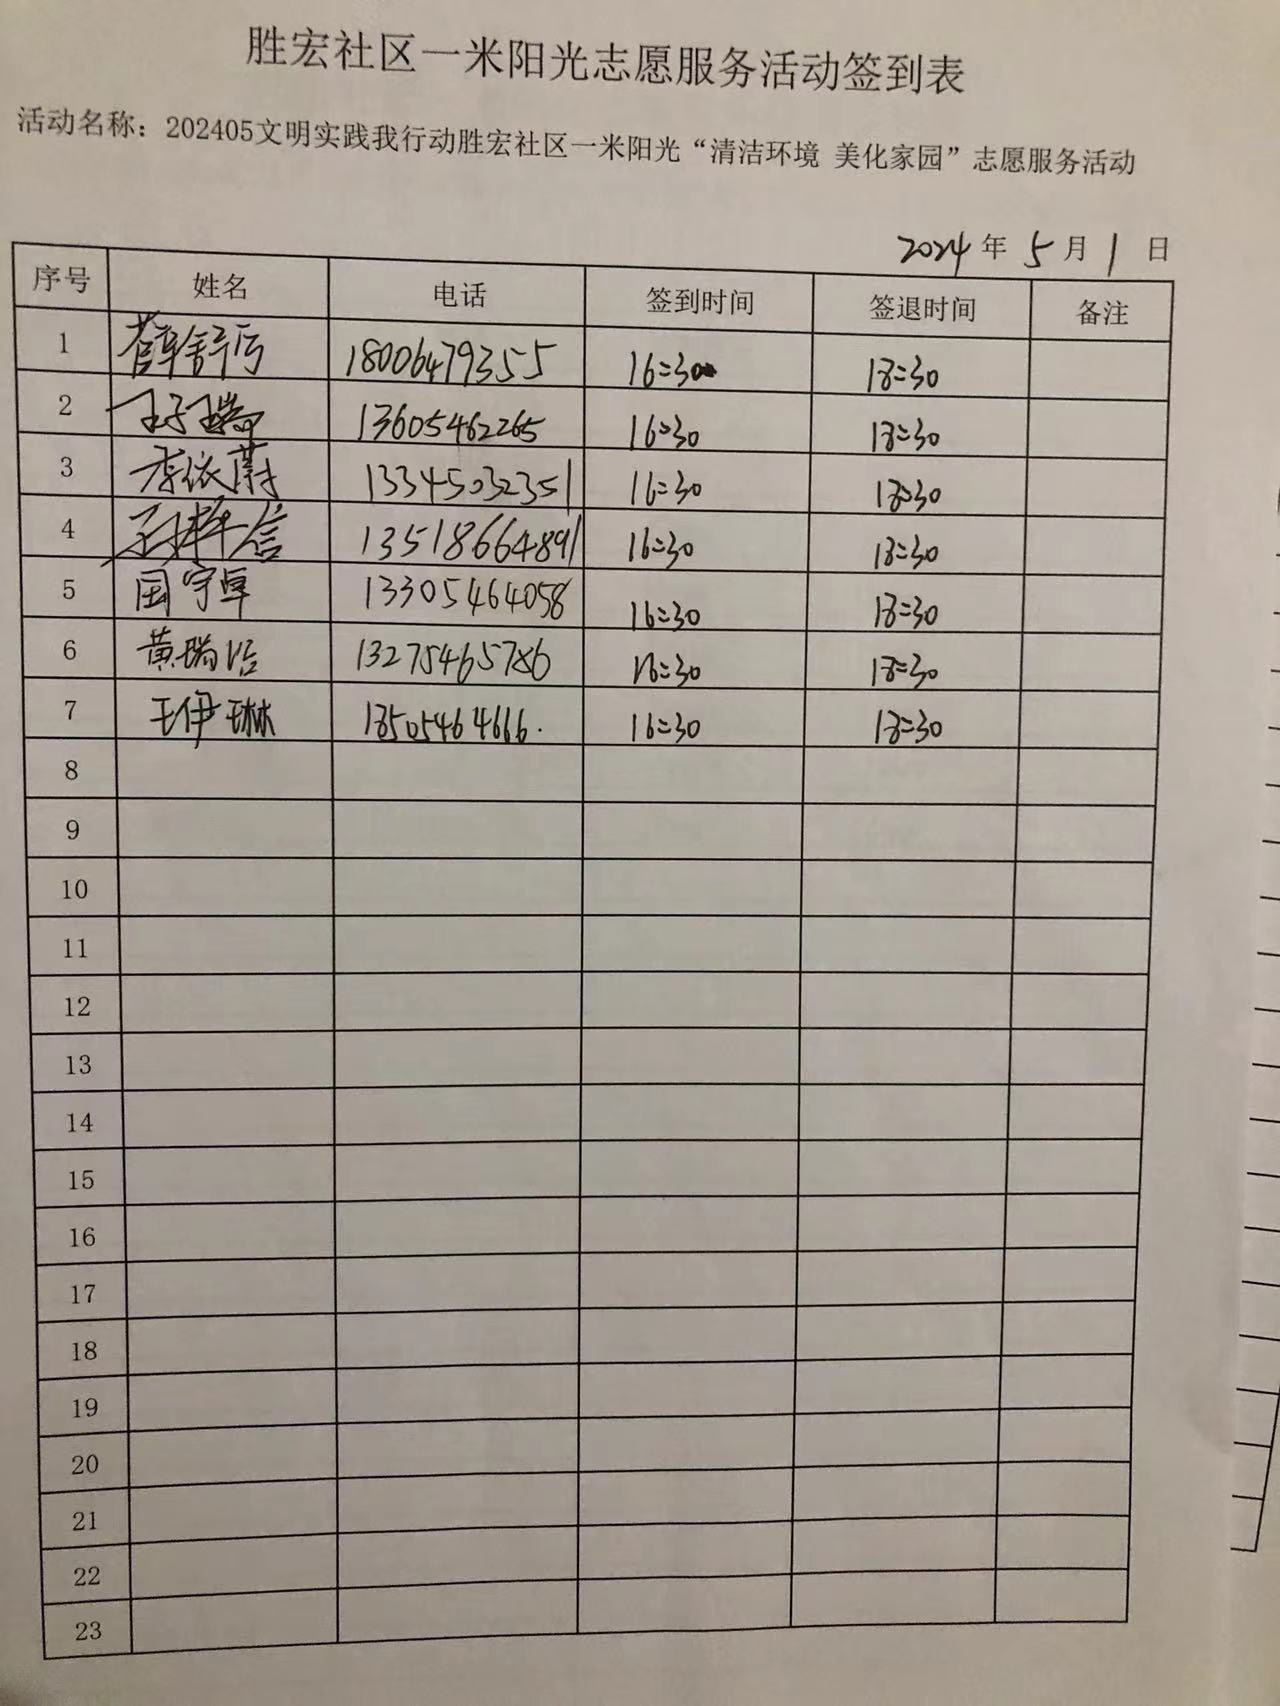 胜宏社区一米阳光志愿服务活动签到表
活动名称：202405文明实践我行动胜宏社区一米阳光“清洁环境 美化家园”志愿服务活动
2024 年 5 月 1 日
序号 姓名 电话 签到时间 签退时间 备注
1 18006479355 16:30 18:30
2 王子瑞 13605462265 16:30 18:30
3 李依蔚 13345032351 16:30 18:30
4 13518664891 16:30 18:30
5 国宇卓 13305464058 16:30 18:30
6 黄瑞 13275465786 16:30 18:30
7 王伊琳 18505464666. 16:30 18:30
8
9
10
11
12
13
14
15
16
17
18
19
20
21
22
23